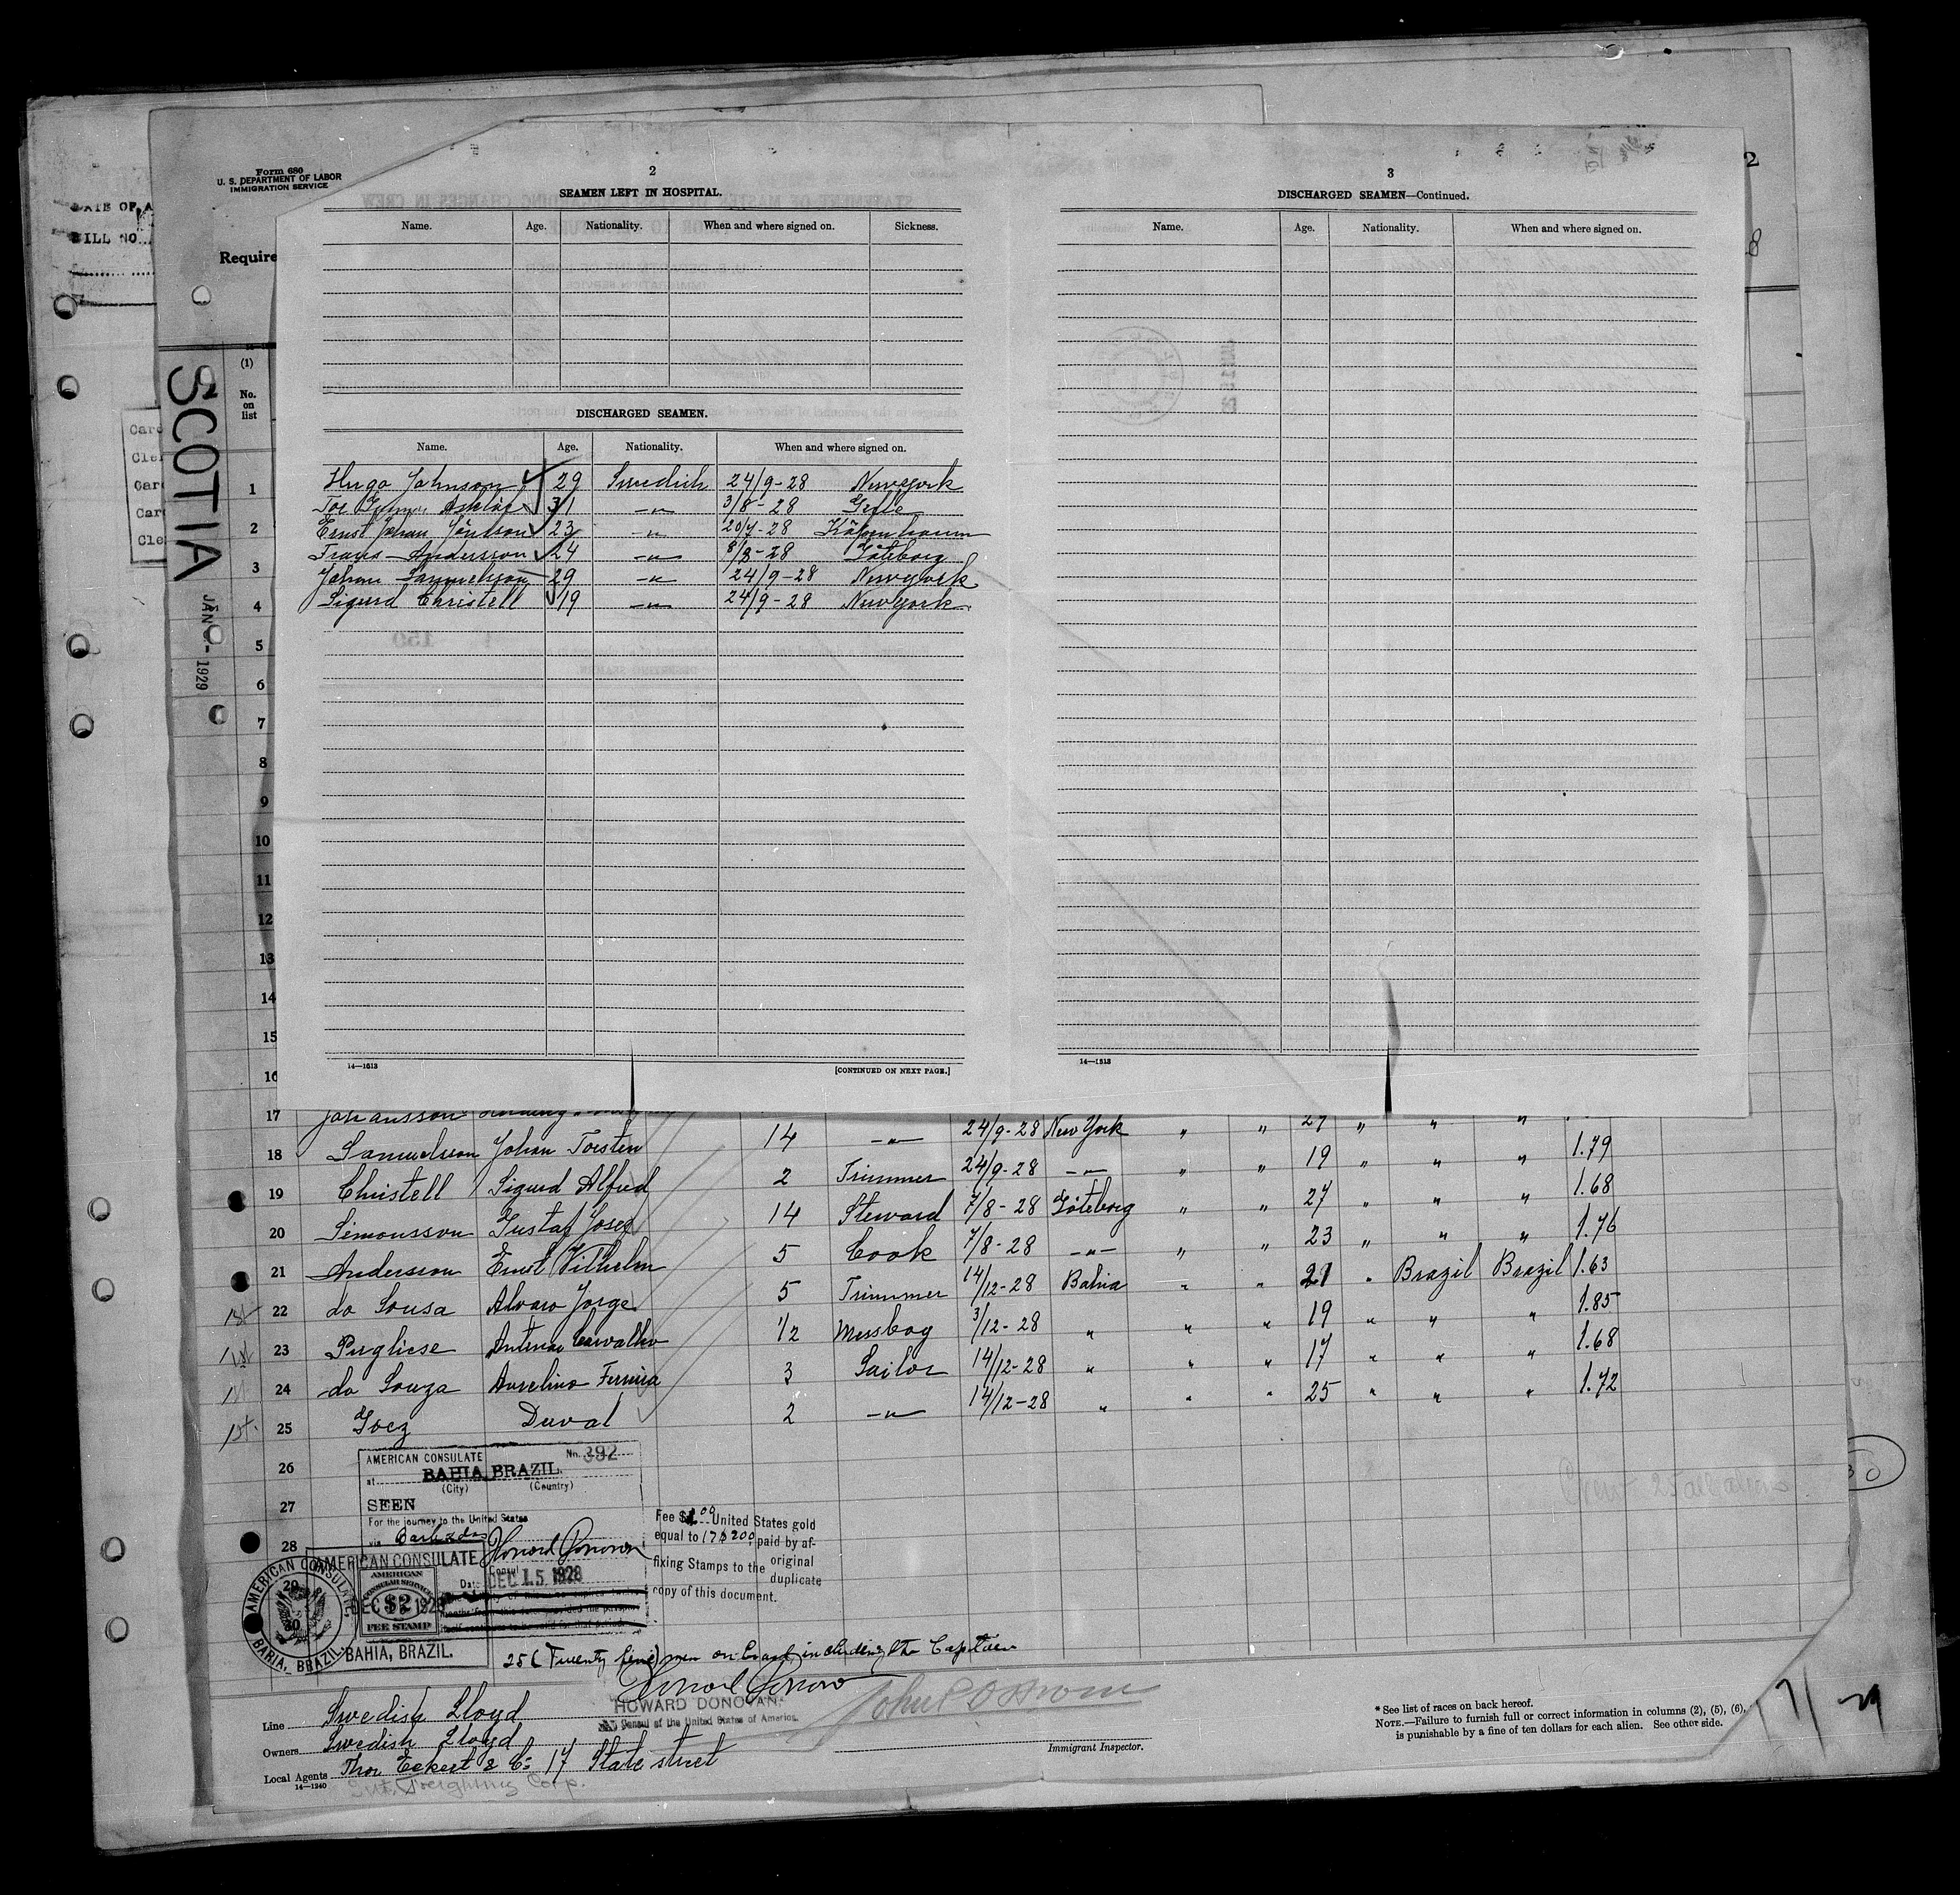 Form 680
U. S. DEPARTMENT OF LABOR
IMMIGRATION SERVICE
DATE OF A
BILL NO.
Require
SCOTIA
JAN - 1929
(1)
No.
on
list
2
SEAMEN LEFT IN HOSPITAL.
Name. Age. Nationality. When and where signed on. Sickness.
DISCHARGED SEAMEN.
Name. Age. Nationality. When and where signed on.
Hugo Johnson 29 Swedish 24/9-28 Newyork
31 -"- 3/8-28 Gefle
Ernst Johan 23 -"- 20/7-28 Köpenhamn
Frans Andersson 24 -"- 8/8-28 Göteborg
Johan Samuelsson 29 -"- 24/9-28 Newyork
Sigurd Christell 19 -"- 24/9-28 Newyork
14—1513
[CONTINUED ON NEXT PAGE.]
3
DISCHARGED SEAMEN—Continued.
Name. Age. Nationality. When and where signed on.
14—1513
1
2
3
4
5
6
7
8
9
10
11
12
13
14
15
16
17 Johansson
18 Samuelsson Johan Torsten 14 -"- 24/9-28 New York " " 29 " " "
19 Christell Sigurd Alfred 2 Trimmer 24/9-28 -"- " " 19 " " " 1.79
20 Simonsson Gustaf Josef 14 Steward 7/8-28 Göteborg " " 27 " " " 1.68
21 Andersson Ernst Vilhelm 5 Cook 7/8-28 -"- " " 23 " " " 1.76
22 do Sousa Alvaro Jorge 5 Trimmer 14/12-28 Bahia " " 21 " Brazil Brazil 1.63
23 Pugliese Antenor Carvalho 1/2 Messboy 3/12-28 " " " 19 " " " 1.85
24 do Souza Aurelino Ferreira 3 Sailor 14/12-28 " " " 17 " " " 1.68
1st 25 Goez Duval 2 -"- 14/12-28 " " " 25 " " " 1.72
26
27
28
AMERICAN CONSULATE No. 392
at BAHIA, BRAZIL.
(City) (Country)
SEEN
For the journey to the United States
via Barbados
Howard Donovan
Consul
Date DEC 15 1928
Fee $ United States gold
equal to 17$200, paid by af-
fixing Stamps to the original
duplicate
copy of this document.
AMERICAN CONSULATE
BAHIA, BRAZIL.
AMERICAN
CONSULAR SERVICE
$2
FEE STAMP
AMERICAN CONSULATE,
BAHIA, BRAZIL.
25 (Twenty five) men on board including the Captain
Howard Donovan
HOWARD DONOVAN.
Consul of the United States of America.
Immigrant Inspector.
Line Swedish Lloyd
Owners Swedish Lloyd
Local Agents Thor Eckert & Co 17 State street
14—1240
* See list of races on back hereof.
NOTE.—Failure to furnish full or correct information in columns (2), (5), (6),
is punishable by a fine of ten dollars for each alien. See other side.